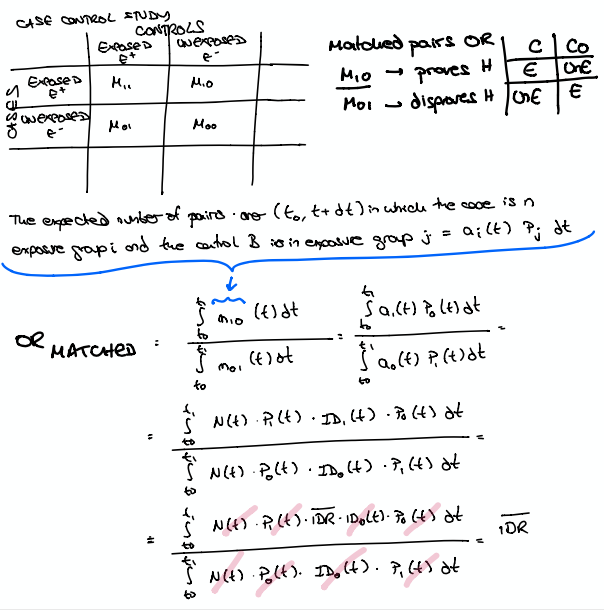 CASE CONTROL STUDY
CONTROLS
EXPOSED E⁺ UNEXPOSED E⁻
CASES
EXPOSED E⁺ M₁₁ M₁₀
UNEXPOSED E⁻ M₀₁ M₀₀
Matched pairs OR
M₁₀ → proves H
M₀₁ → disproves H
C CO
E UnE
UnE E
The expected number of pairs over (t₀, t+dt) in which the case is n
exposure group i and the control B is in exposure group j = aᵢ(t) Pⱼ dt
OR MATCHED = ∫t₀t₁ m₁₀ (t) dt / ∫t₀t₁ m₀₁ (t) dt = ∫t₀t₁ a₁(t) P₀(t) dt / ∫t₀t₁ a₀(t) P₁(t) dt =
= ∫t₀t₁ N(t) · P₁(t) · ID₁(t) · P₀(t) dt / ∫t₀t₁ N(t) · P₀(t) · ID₀(t) · P₁(t) dt =
= ∫t₀t₁ N(t) · P₁(t) · IDR · ID₀(t) · P₀(t) dt / ∫t₀t₁ N(t) · P₀(t) · ID₀(t) · P₁(t) dt = IDR